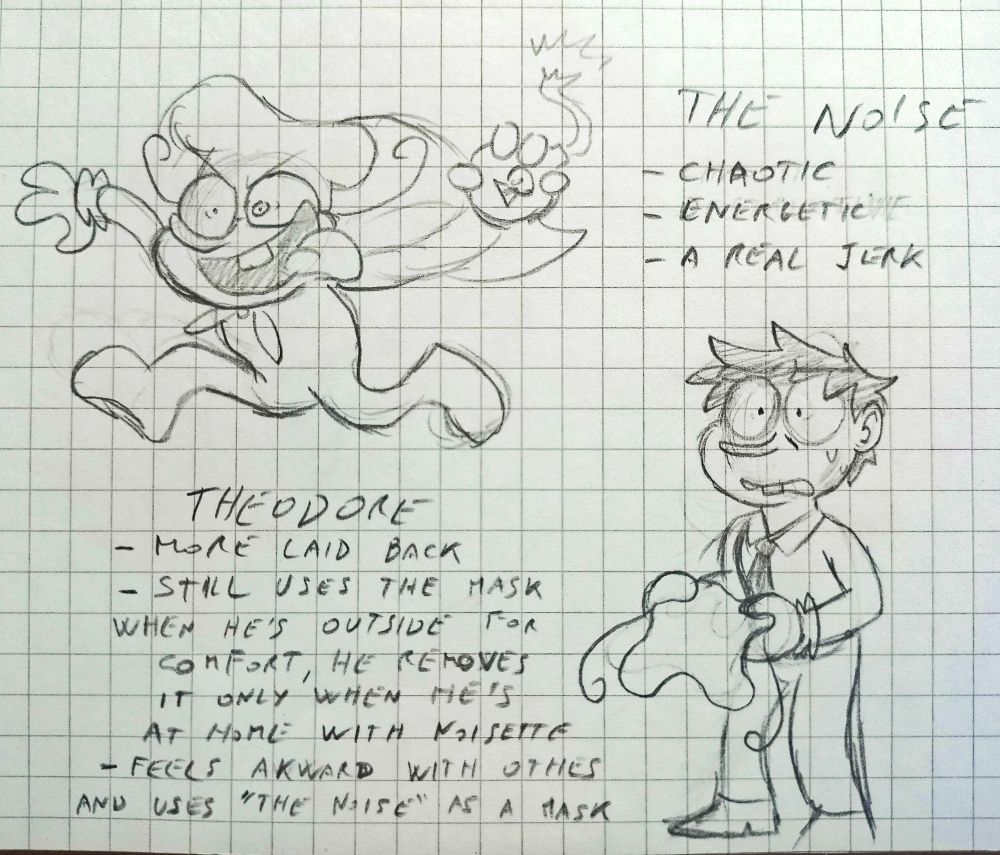 THE NOISE
- CHAOTIC
- ENERGETIC
- A REAL JERK
THEODORE
- MORE LAID BACK
- STILL USES THE MASK
WHEN HE'S OUTSIDE FOR
COMFORT, HE REMOVES
IT ONLY WHEN HE'S
AT HOME WITH NOISETTE
- FEELS AKWARD WITH OTHES
AND USES "THE NOISE" AS A MASK